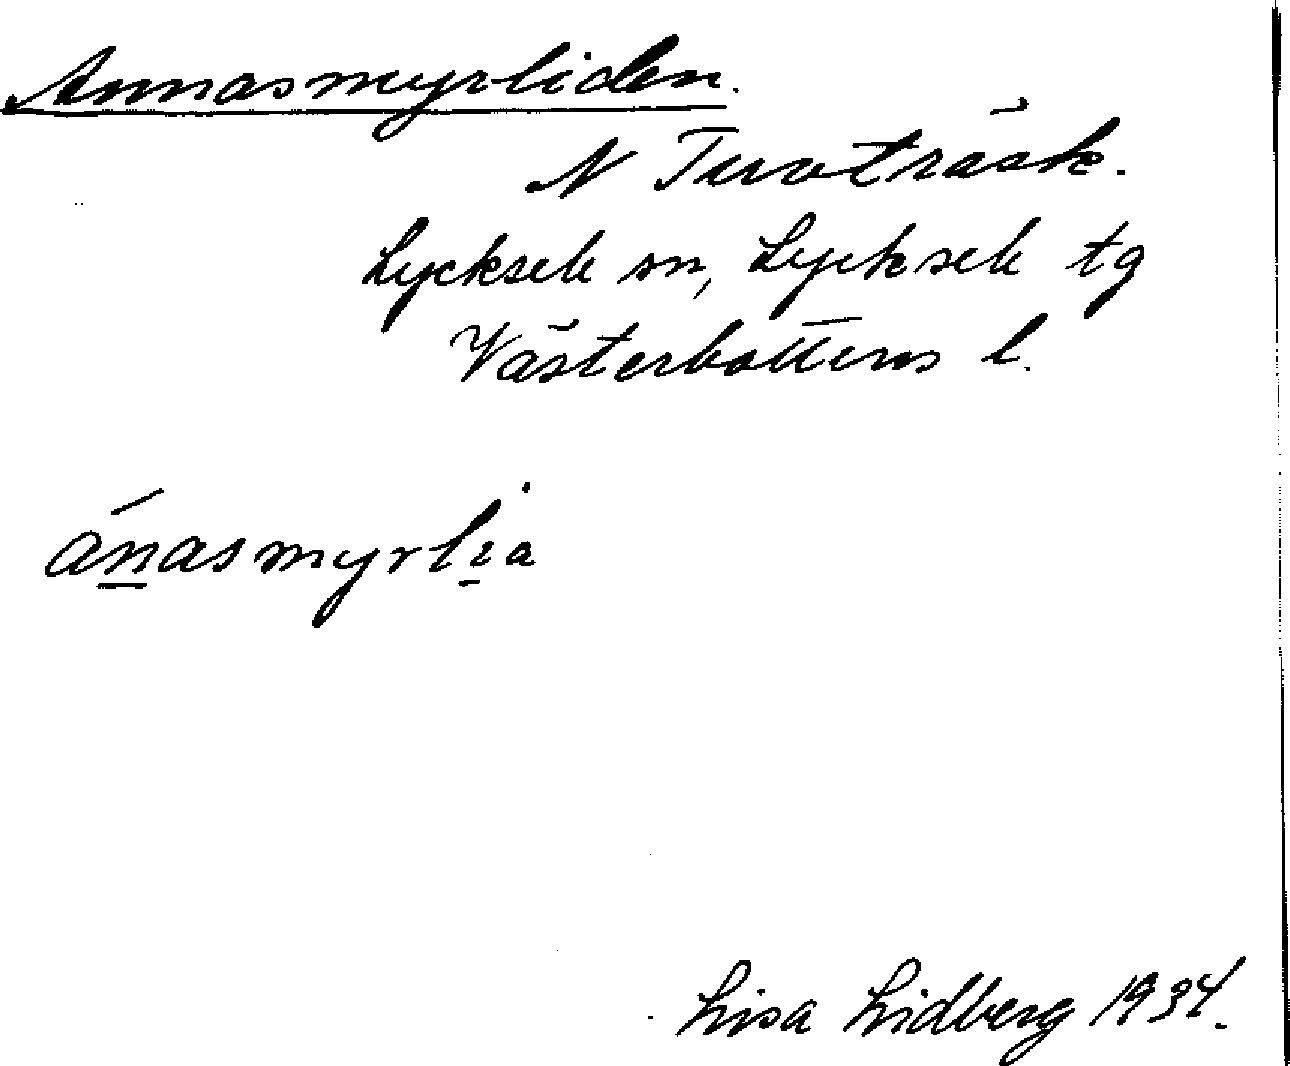 Annasmyrliden.
N Tuvoträsk.
Lycksele sn, Lycksele tg
Västerbottens l.
ánasmyrlia
Lisa Lidberg 1934.